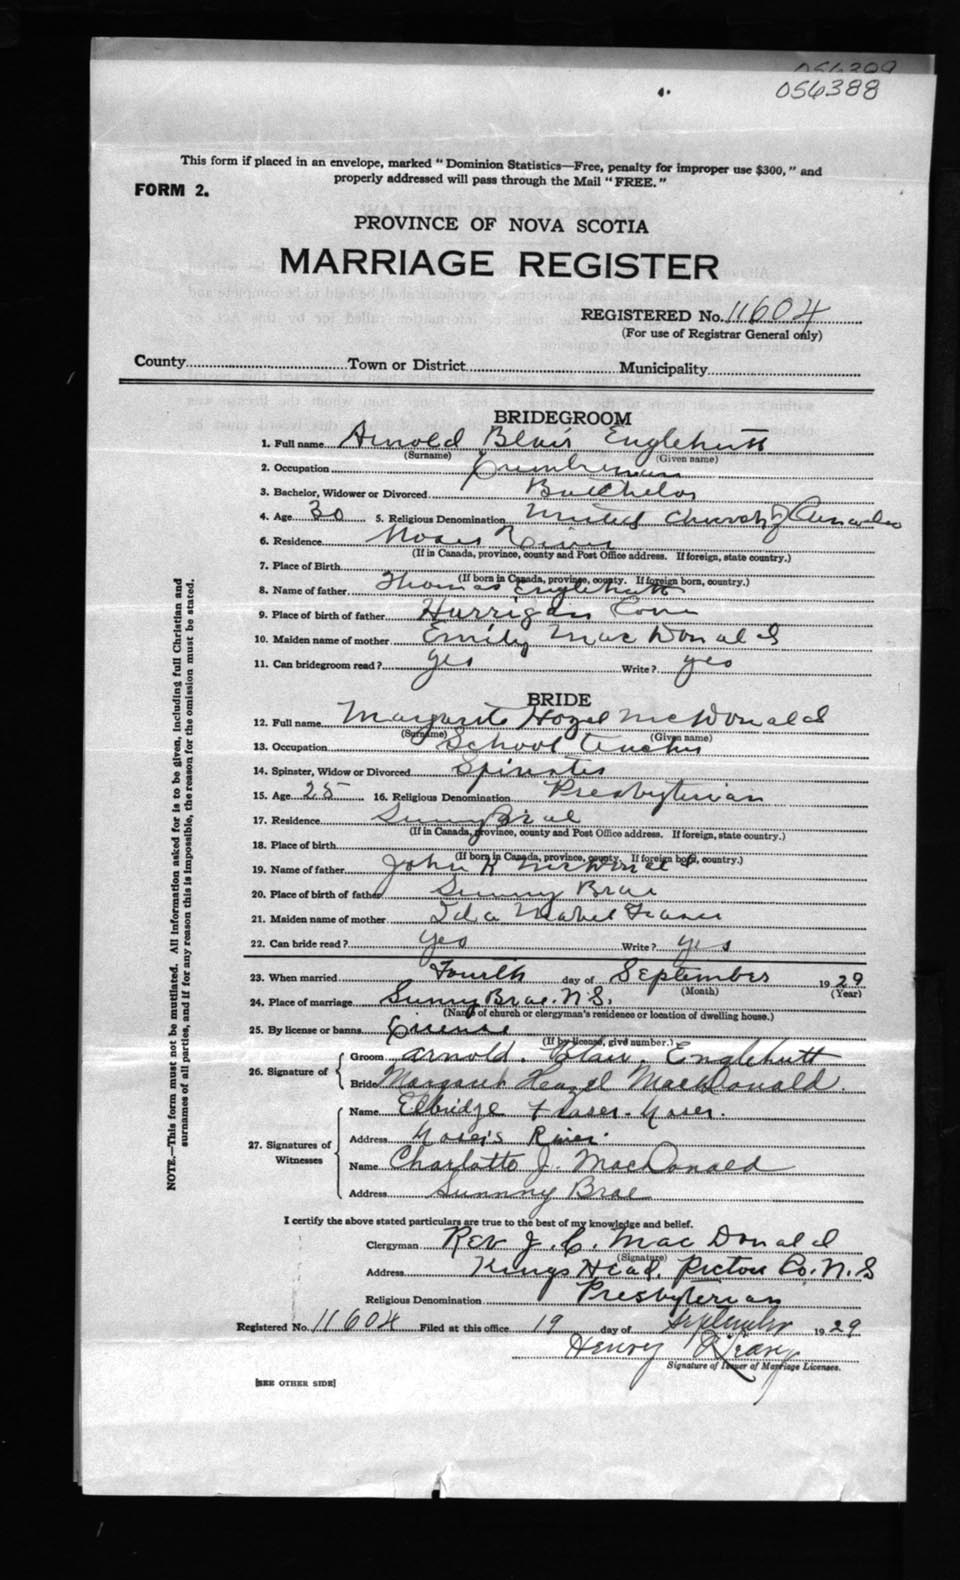 056388
This form if placed in an envelope, marked "Dominion Statistics—Free, penalty for improper use $300," and
properly addressed will pass through the Mail "FREE."
FORM 2.
PROVINCE OF NOVA SCOTIA
MARRIAGE REGISTER
REGISTERED No. 11604
(For use of Registrar General only)
County Town or District Municipality
BRIDEGROOM
1. Full name Arnold Blair Englehutt
(Surname) (Given name)
2. Occupation
3. Bachelor, Widower or Divorced Batchelor
4. Age 30 5. Religious Denomination United Church of
6. Residence Moses River
(If in Canada, province, county and Post Office address. If foreign, state country.)
7. Place of Birth
(If born in Canada, province, county. If foreign born, country.)
8. Name of father Thomas Englehutt
9. Place of birth of father Harrigan Cove
10. Maiden name of mother Emily MacDonald
11. Can bridegroom read? yes Write? yes
BRIDE
12. Full name Margarite Hazel McDonald
(Surname) (Given name)
13. Occupation School Teacher
14. Spinster, Widow or Divorced Spinster
15. Age 25 16. Religious Denomination Presbyterian
17. Residence Sunny Brae
(If in Canada, province, county and Post Office address. If foreign, state country.)
18. Place of birth
(If born in Canada, province, county. If foreign born, country.)
19. Name of father John K McDonald
20. Place of birth of father Sunny Brae
21. Maiden name of mother Ida Mabel Fraser
22. Can bride read? yes Write? yes
23. When married Fourth day of September 1929
(Month) (Year)
24. Place of marriage Sunny Brae. N.S.
(Name of church or clergyman's residence or location of dwelling house.)
25. By license or banns License
(If by license, give number.)
26. Signature of
Groom Arnold. Blair. Englehutt
Bride Margaret Heazel MacDonald.
27. Signatures of Witnesses
Name Elbridge Fraser Moser.
Address Moser's River.
Name Charlotte J. MacDonald
Address Sunnny Brae
I certify the above stated particulars are true to the best of my knowledge and belief.
Clergyman Rev J. C. MacDonald
(Signature)
Address Kings Head, Pictou Co. N.S
Religious Denomination Presbyterian
Registered No. 11604 Filed at this office 19 day of September 1929
Henry
Signature of Issuer of Marriage Licenses.
[SEE OTHER SIDE]
NOTE.—This form must not be mutilated. All information asked for is to be given, including full Christian and
surnames of all parties, and if for any reason this is impossible, the reason for the omission must be stated.